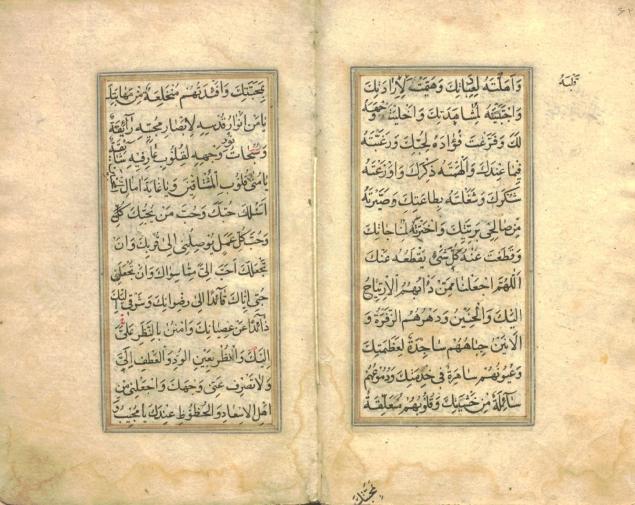 وَاَهَّلْتَهُ لِعِبَادَتِكَ وَهَيَّمْتَهُ لِاِرَادَتِكَ
وَاجْتَبَيْتَهُ لِمُشَاهَدَتِكَ وَاَخْلَيْتَ وَجْهَهُ
لَكَ وَفَرَّغْتَ فُؤَادَهُ لِحُبِّكَ وَرَغَّبْتَهُ
فِيمَا عِنْدَكَ وَاَلْهَمْتَهُ ذِكْرَكَ وَاَوْزَعْتَهُ
شُكْرَكَ وَشَغَلْتَهُ بِطَاعَتِكَ وَصَيَّرْتَهُ
مِنْ صَالِحِي بَرِيَّتِكَ وَاخْتَرْتَهُ لِمُنَاجَاتِكَ
وَقَطَعْتَ عَنْهُ كُلَّ شَيْءٍ يَقْطَعُهُ عَنْكَ
اَللّٰهُمَّ اجْعَلْنَا مِمَّنْ دَأْبُهُمُ الْاِرْتِيَاحُ
اِلَيْكَ وَالْحَنِينُ وَدَهْرُهُمُ الزَّفْرَةُ وَ
الْاَنِينُ جِبَاهُهُمْ سَاجِدَةٌ لِعَظَمَتِكَ
وَعُيُونُهُمْ سَاهِرَةٌ فِي خِدْمَتِكَ وَدُمُوعُهُمْ
سَائِلَةٌ مِنْ خَشْيَتِكَ وَقُلُوبُهُمْ مُتَعَلِّقَةٌ
بِمَحَبَّتِكَ وَاَفْئِدَتُهُمْ مُنْخَلِعَةٌ مِنْ مَهَابَتِكَ
يَا مَنْ اَنْوَارُ قُدْسِهِ لِاَبْصَارِ مُحِبِّيهِ رَائِقَةٌ
وَسُبُحَاتُ نُورِ وَجْهِهِ لِقُلُوبِ عَارِفِيهِ شَائِقَةٌ
يَا مُنَى قُلُوبِ الْمُشْتَاقِينَ وَيَا غَايَةَ اٰمَالِ
اَسْئَلُكَ حُبَّكَ وَحُبَّ مَنْ يُحِبُّكَ
وَحُبَّ كُلِّ عَمَلٍ يُوصِلُنِي اِلَى قُرْبِكَ وَاَنْ
تَجْعَلَكَ اَحَبَّ اِلَيَّ مِمَّا سِوَاكَ وَاَنْ تَجْعَلَ
حُبِّي اِيَّاكَ قَائِدًا اِلَى رِضْوَانِكَ وَشَوْقِي اِلَيْكَ
ذَائِدًا عَنْ عِصْيَانِكَ وَامْنُنْ بِالنَّظَرِ
اِلَيْكَ وَانْظُرْ بِعَيْنِ الْوُدِّ وَالْعَطْفِ اِلَيَّ
وَلَا تَصْرِفْ عَنِّي وَجْهَكَ وَاجْعَلْنِي مِنْ
اَهْلِ الْاِسْعَادِ وَالْحُظْوَظِ عِنْدَكَ يَا مُجِيبُ